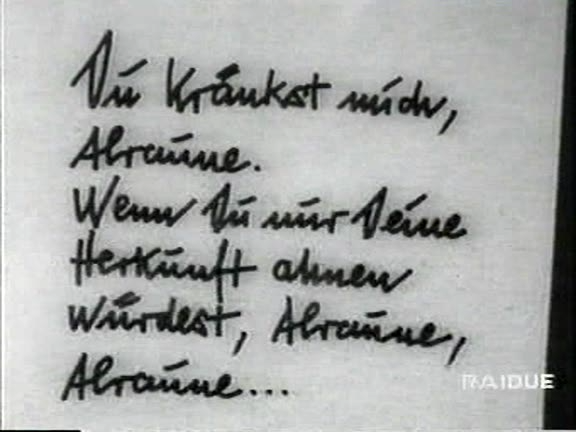 Du kränkst mich,
Alraune.
Wenn Du nur Deine
Herkunft ahnen
würdest, Alraune,
Alraune...
RAIDUE